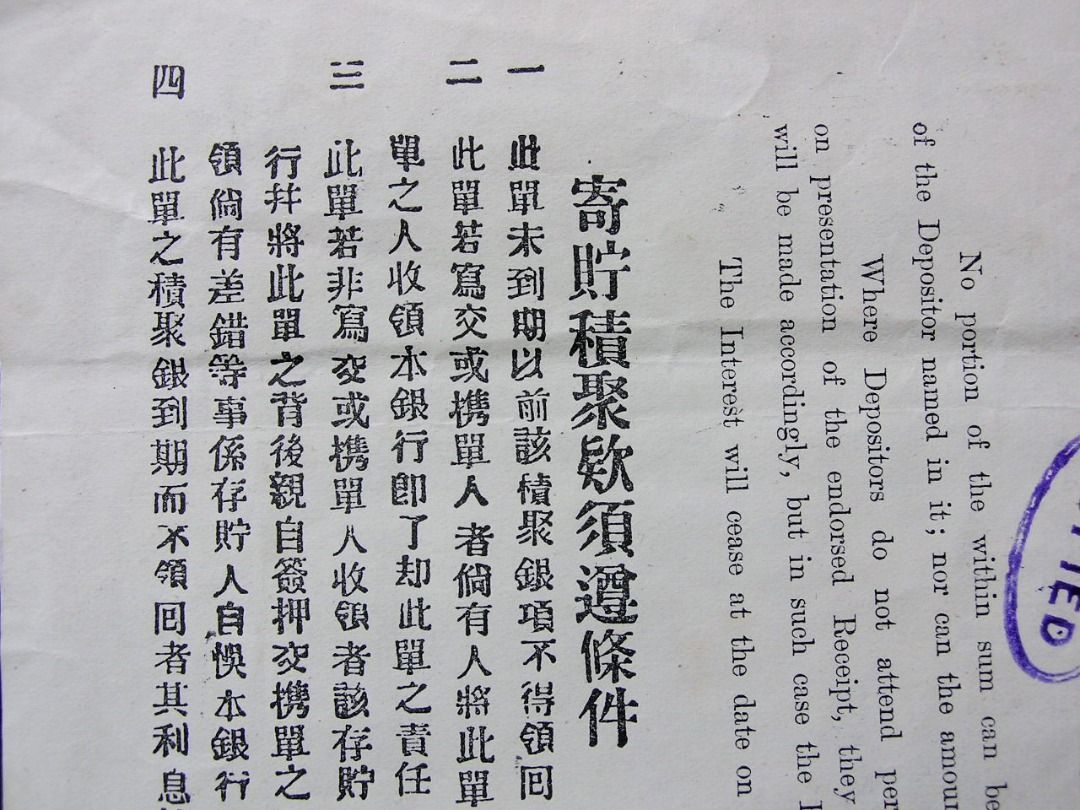 寄貯積聚欵須遵條件
一 此單未到期以前該積聚銀項不得領回
二 此單若寫交或携單人者倘有人將此單
單之人收領本銀行卽了却此單之責任
三 此單若非寫交或携單人收領者該存貯
行幷將此單之背後親自簽押交携單之
領倘有差錯等事係存貯人自悞本銀行
四 此單之積聚銀到期而不領回者其利息
No portion of the within sum can be
of the Depositor named in it; nor can the amoun
Where Depositors do not attend per
on presentation of the endorsed Receipt, they
will be made accordingly, but in such case the
The Interest will cease at the date on